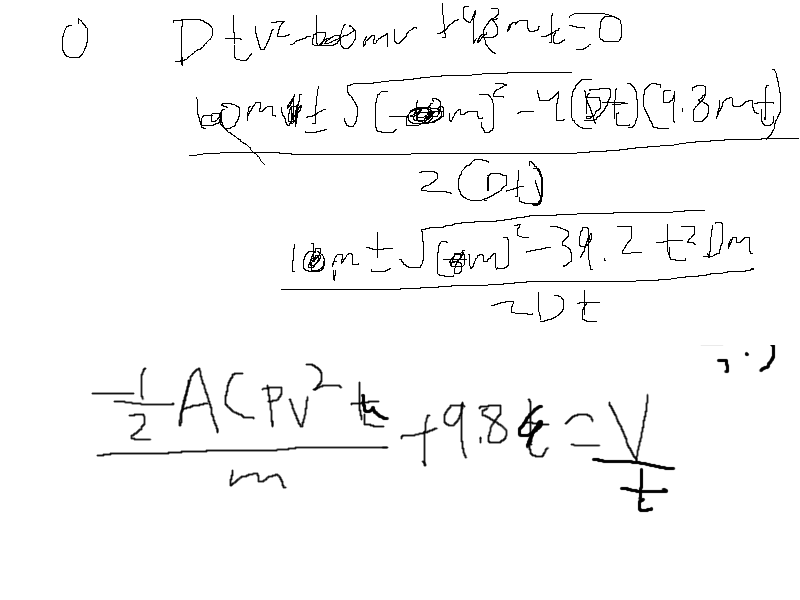 0 Dtv²-60mv+9.8mt=0
60m±√(-m)²-4(Dt)(9.8mt)
2(Dt)
10m±√(-m)²-39.2t²Dm
2Dt
-1/2 ACPv²t
+9.8t=V/t
m